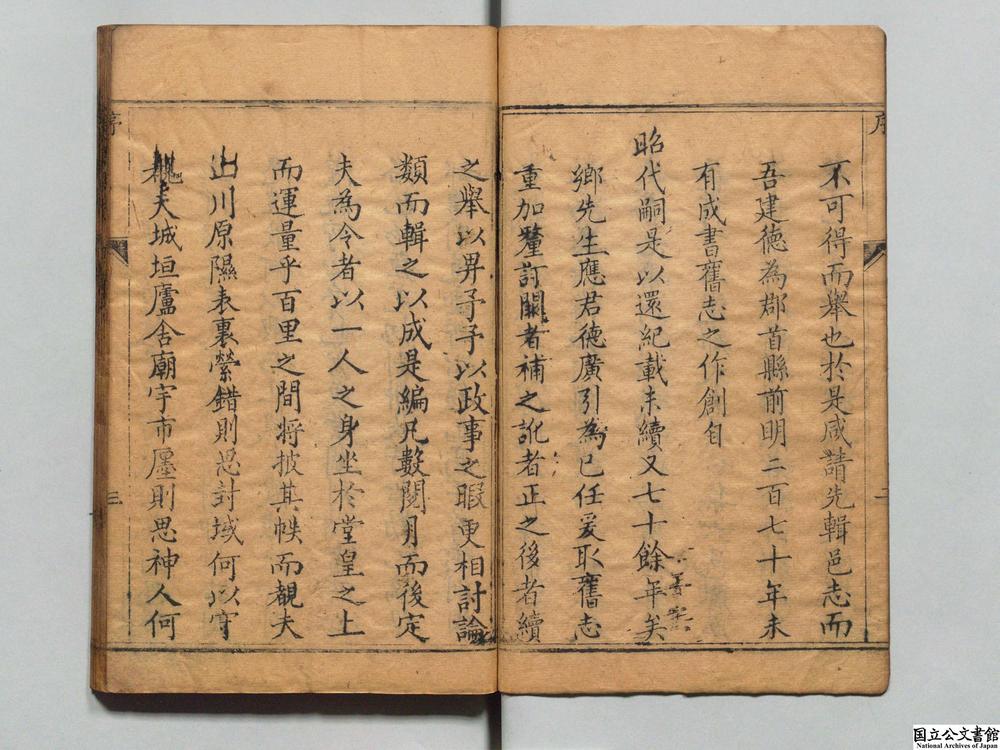 不可得而舉也於是咸請先輯邑志而
吾建德為郡首縣前明二百七十年未
有成書舊志之作創自
昭代嗣是以還紀載未續又七十餘年矣
鄉先生應君德廣引為己任爰取舊志
重加釐訂闕者補之訛者正之後者續
之舉以畀予予以政事之暇更相討論
類而輯之以成是編凡數閱月而後定
夫為令者以一人之身坐於堂皇之上
而運量乎百里之間將披其帙而覩夫
山川原隰表裏縈錯則思封域何以守
夫城垣廬舍廟宇市廛則思神人何
序
二
序
三
国立公文書館
National Archives of Japan